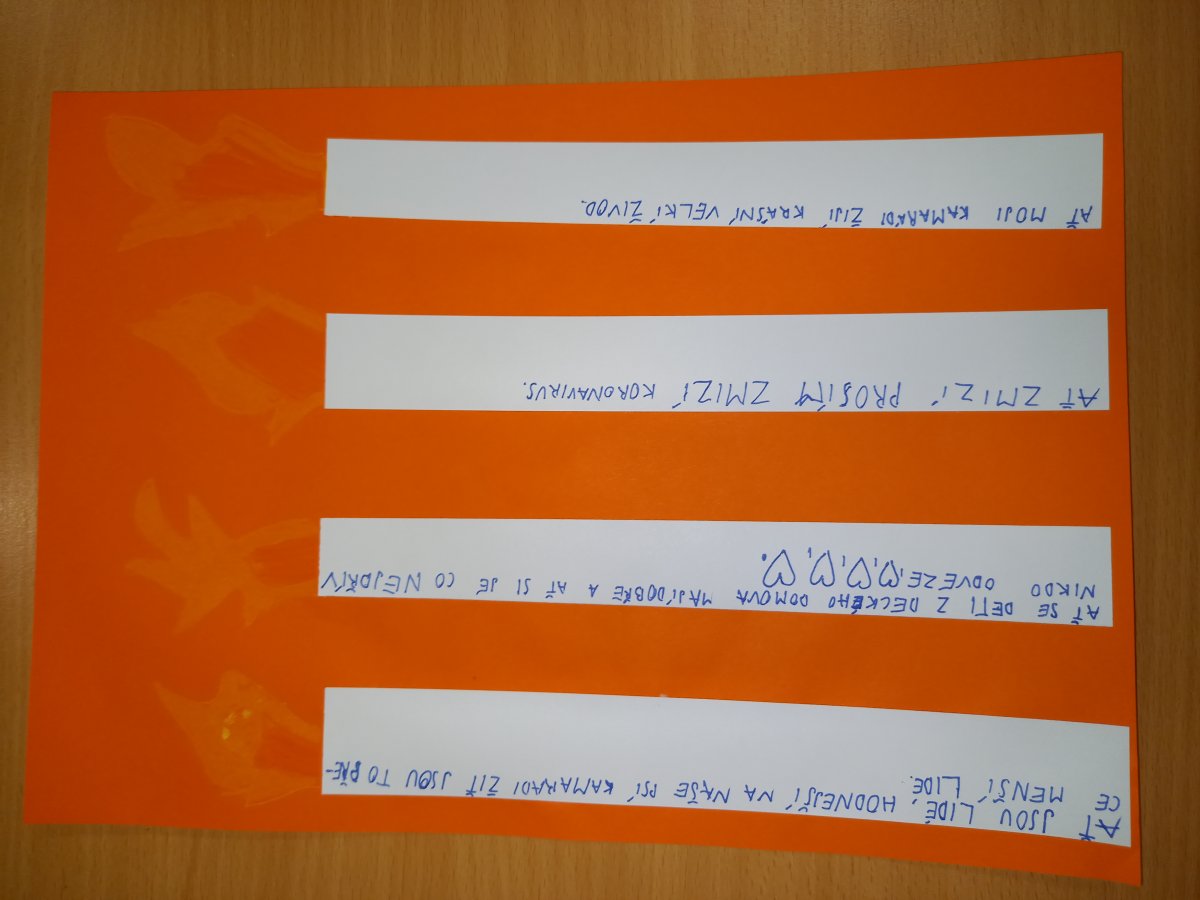 AŤ JSOU LIDÉ, HODNEJŠÍ NA NAŠE PSÍ KAMARADI ŽIŤ JSOU TO PŘE-
CE MENŠÍ LIDÉ.
AŤ SE DETI Z DECKÉHO DOMOVA MAJÍ DOBŘE A AŤ SI JE CO NEJDŘÍV
NIKDO ODVEZE,♡,♡,♡,♡.
AŤ ZMIZÍ PROSÍM ZMIZÍ KORONAVIRUS.
AŤ MOJI KAMARÁDI ŽIJÍ KRÁSNÍ VELKÍ ŽIVOD.